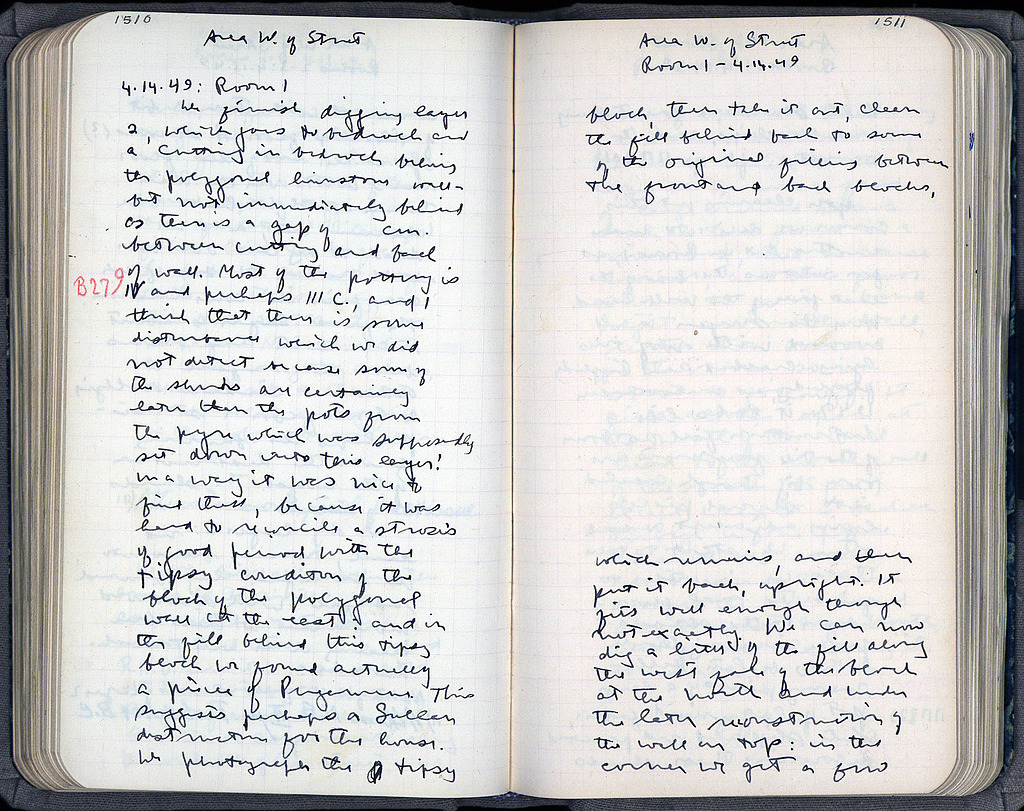 1510
Area W. of Street
4.14.49: Room 1
We finish digging layer
2, which goes to bedrock and
a cutting in bedrock behind
the polygonal limestone wall -
but not immediately behind
as there is a gap of cm.
between cutting and back
of wall. Most of the pottery is
B279
IV and perhaps III C., and I
think that there is some
disturbance which we did
not detect because some of
the sherds are certainly
later than the pots from
the pyre which was supposedly
set down into this layer!
In a way it was nice to
find these, because it was
hard to reconcile a strosis
of good period with the
tipsy condition of the
block of the polygonal
wall at the east: and in
the fill behind this tipsy
block we found actually
a piece of Pergamene. This
suggests perhaps a Sullan
destruction for the house.
We photograph the tipsy
1511
Area W. of Street
Room 1 - 4.14.49
block, then take it out, clean
the fill behind back to some
of the original filling between
the front and back blocks,
which remains, and then
put it back, upright. It
fits well enough though
not exactly. We can now
dig a little of the fill along
the west face of the block
at the north and under
the later reconstruction of
the wall on top: in the
corner we get a few